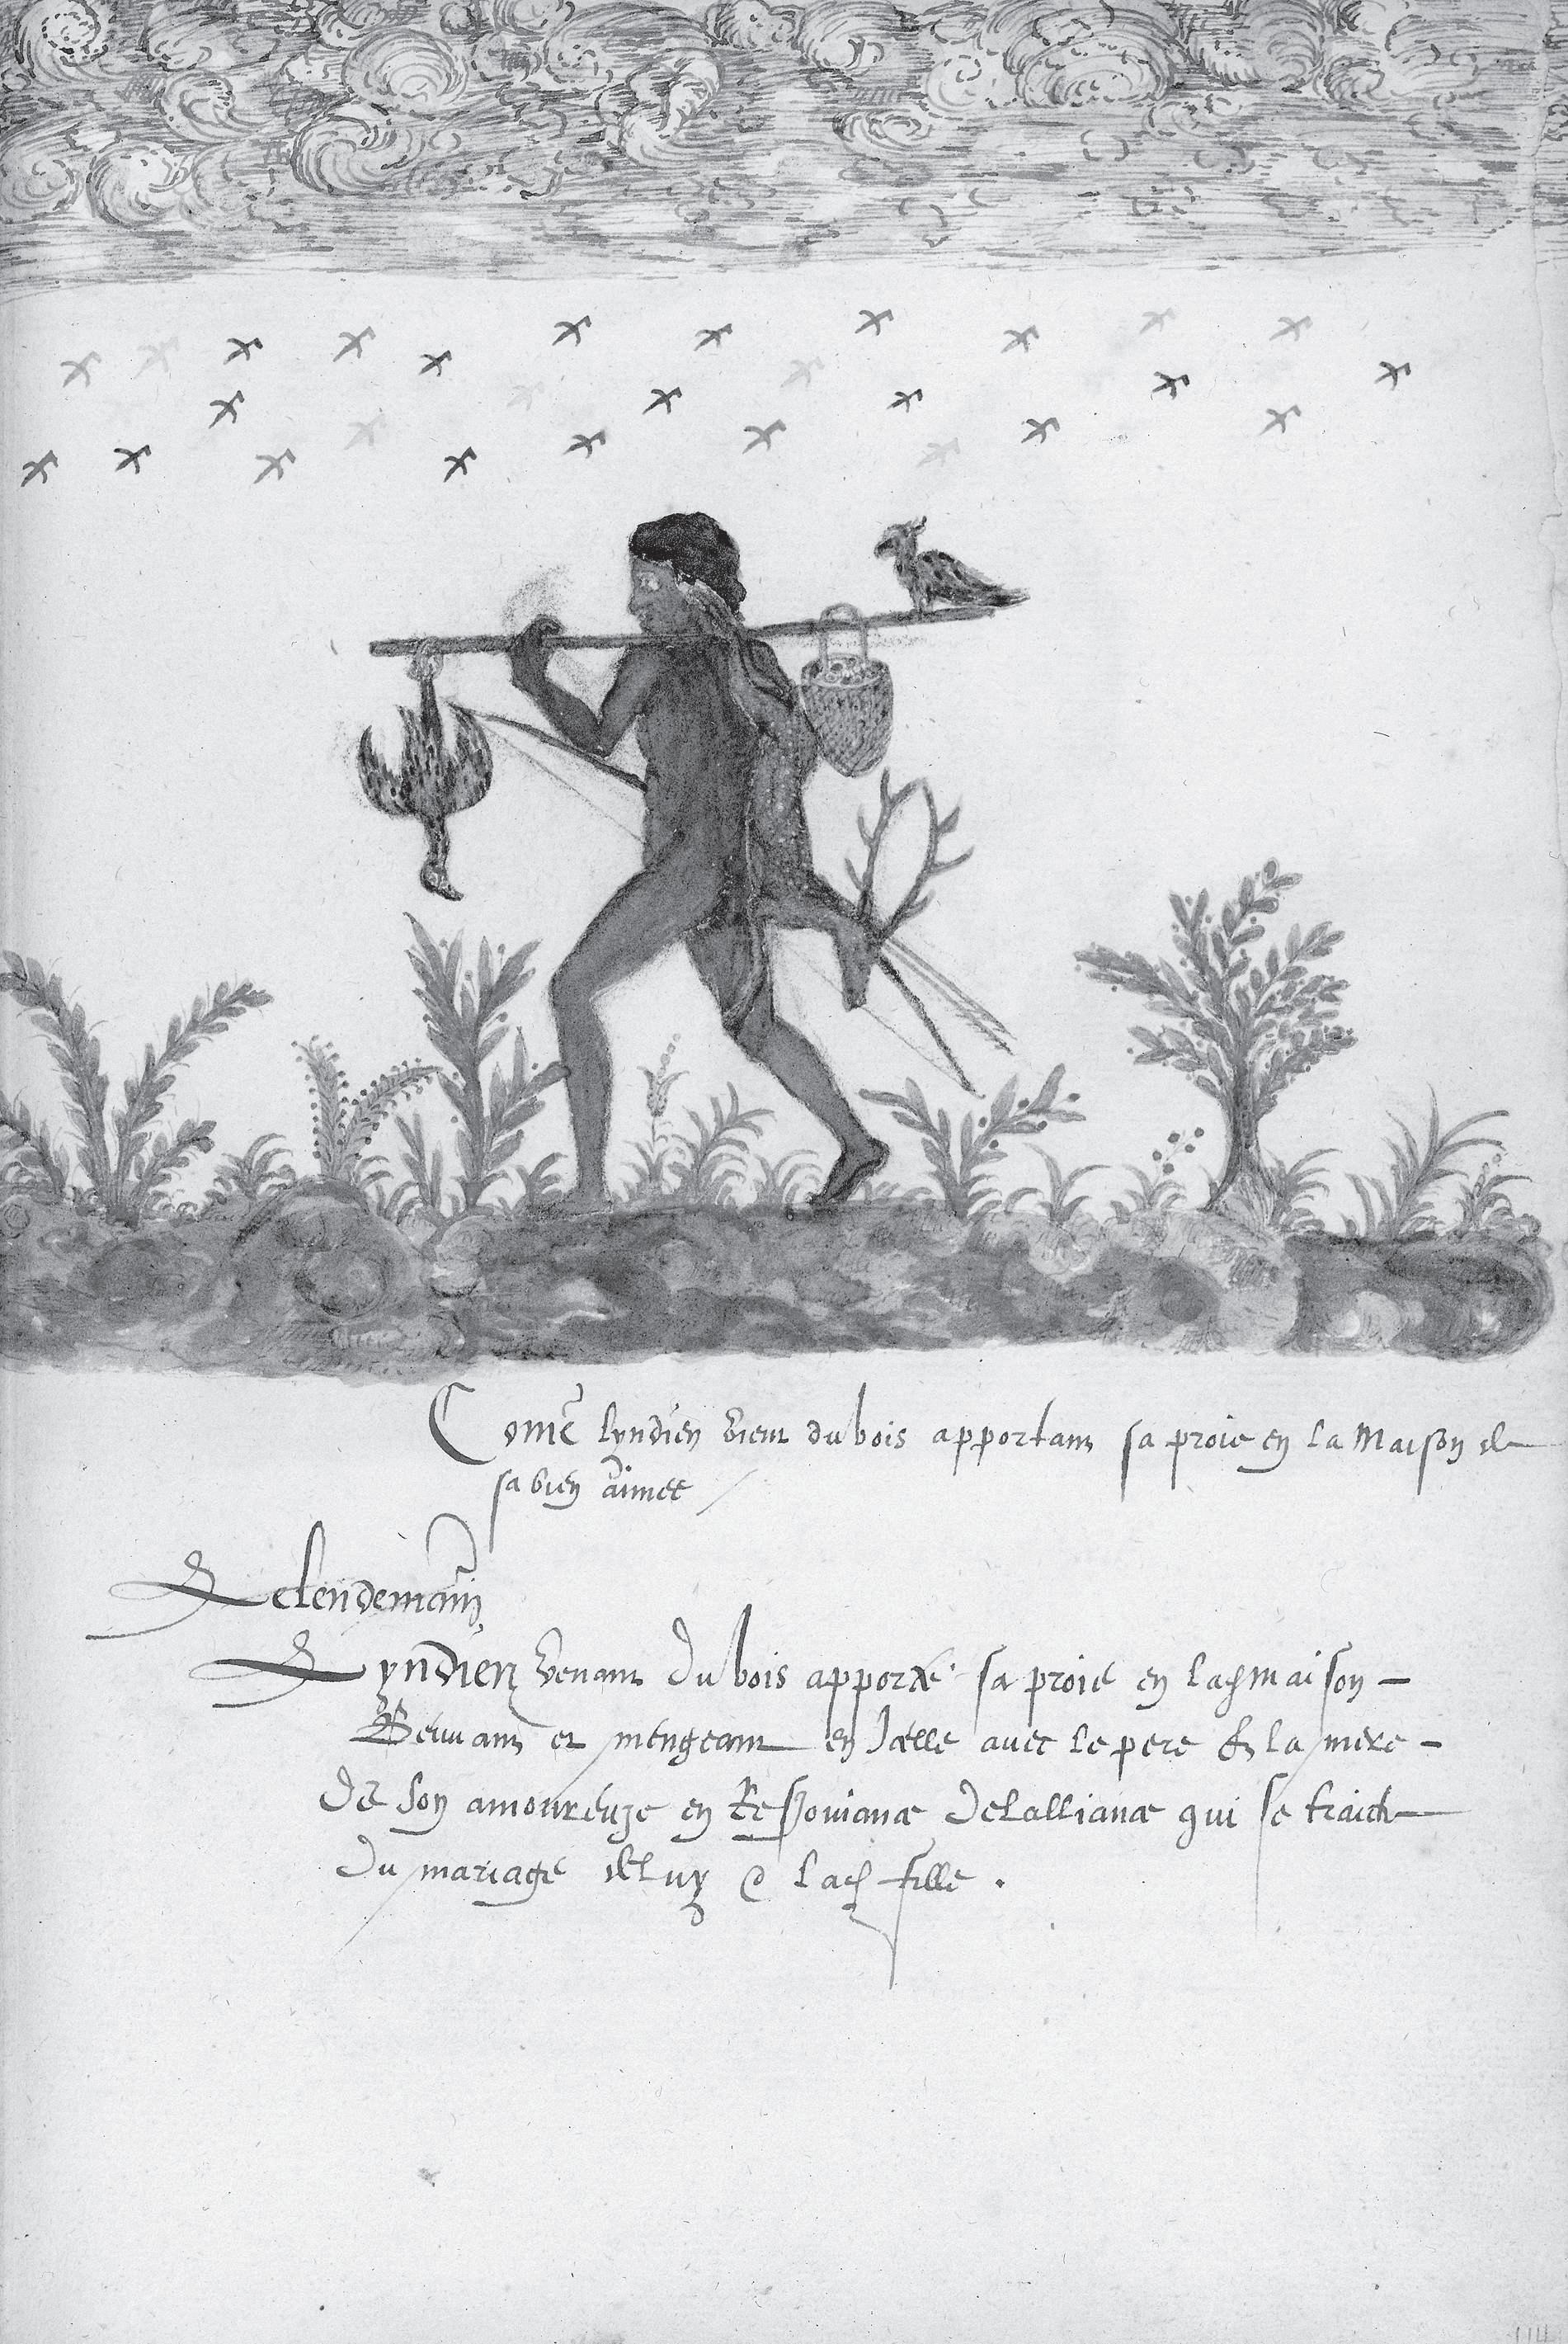 Come lyndien vient du bois apportant sa proie en la maison de
sa bien aimee
Le lendemain
Lyndien venant du bois apporte sa proie en lad maison
Beuuant et mengeant en Icelle auec le pere & la mere
De son amoureuze en Resiouiance de lalliance qui se fraict
Du mariage de luy & lad fille .